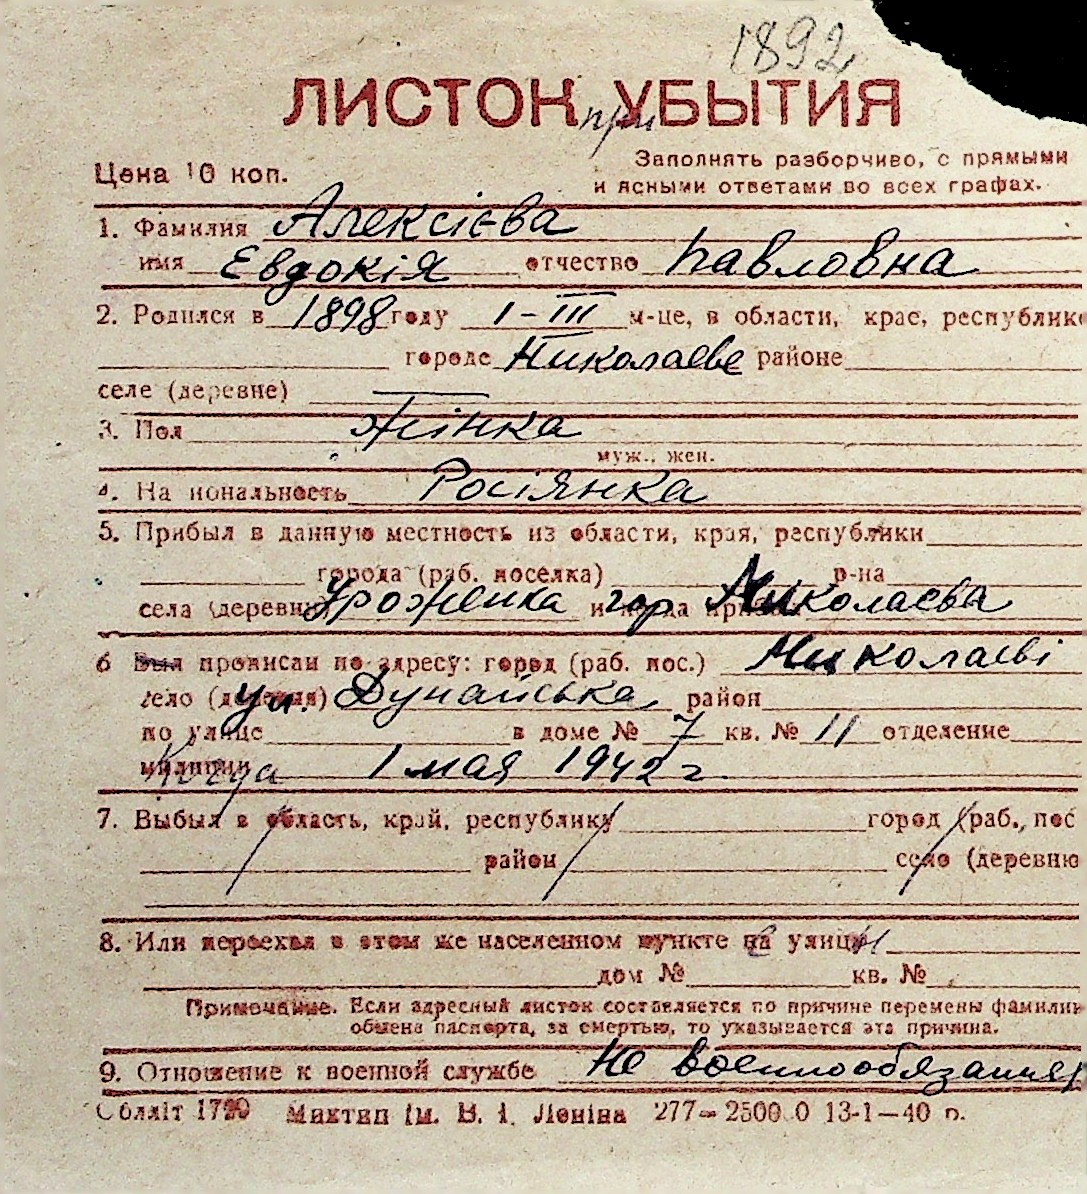 1892
ЛИСТОК при УБЫТИЯ
Цена 10 коп.
Заполнять разборчиво, с прямыми
и ясными ответами во всех графах.
1. Фамилия Алексієва
имя Евдокія отчество Павловна
2. Родился в 1898 году 1-III м-це, в области, крае, республике
городе Николаеве районе
селе (деревне)
3. Пол Жінка
муж., жен.
4. Национальность Росіянка
5. Прибыл в данную местность из области, края, республики
города (раб. поселка) р-на
села (деревни) Уроженка гор Николаева
6 Был прописан по адресу: город (раб. пос.) Николаєві
село (деревня) ул. Дунайська район
по улице в доме № 7 кв. № 11 отделение
милиции Когда 1 мая 1942 г.
7. Выбыл в область, край, республику город (раб., пос
район село (деревню
8. Или переехал в этом же населенном пункте на улицу
дом № кв. №
Примечание. Если адресный листок составляется по причине перемены фамилии
обмена паспорта, за смертью, то указывается эта причина.
9. Отношение к военной службе Не военнообязанная
Обллiт 1790 Миктип iм. В. І. Ленiна 277—2500 0 13-1—40 р.